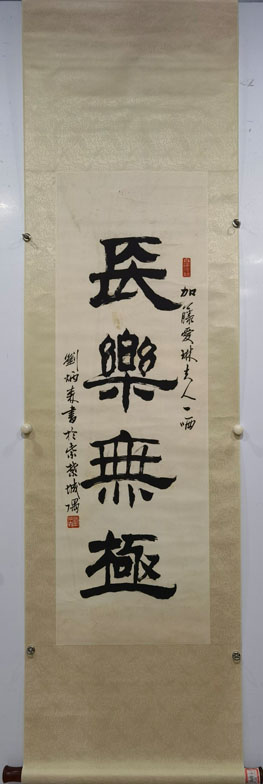 加藤爱琳夫人一哂
長樂無極
劉炳森書於京紫城隅